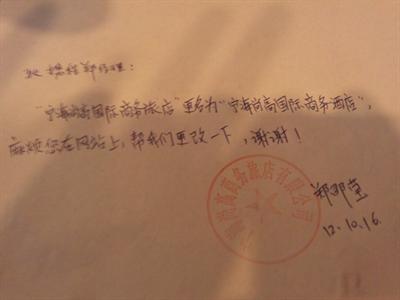 致 携程郑经理：
“宁海尚高国际商务旅店”更名为“宁海尚高国际商务酒店”，
麻烦您在网站上，帮我们更改一下，谢谢！
尚高商务旅店有限公司
12.10.16.